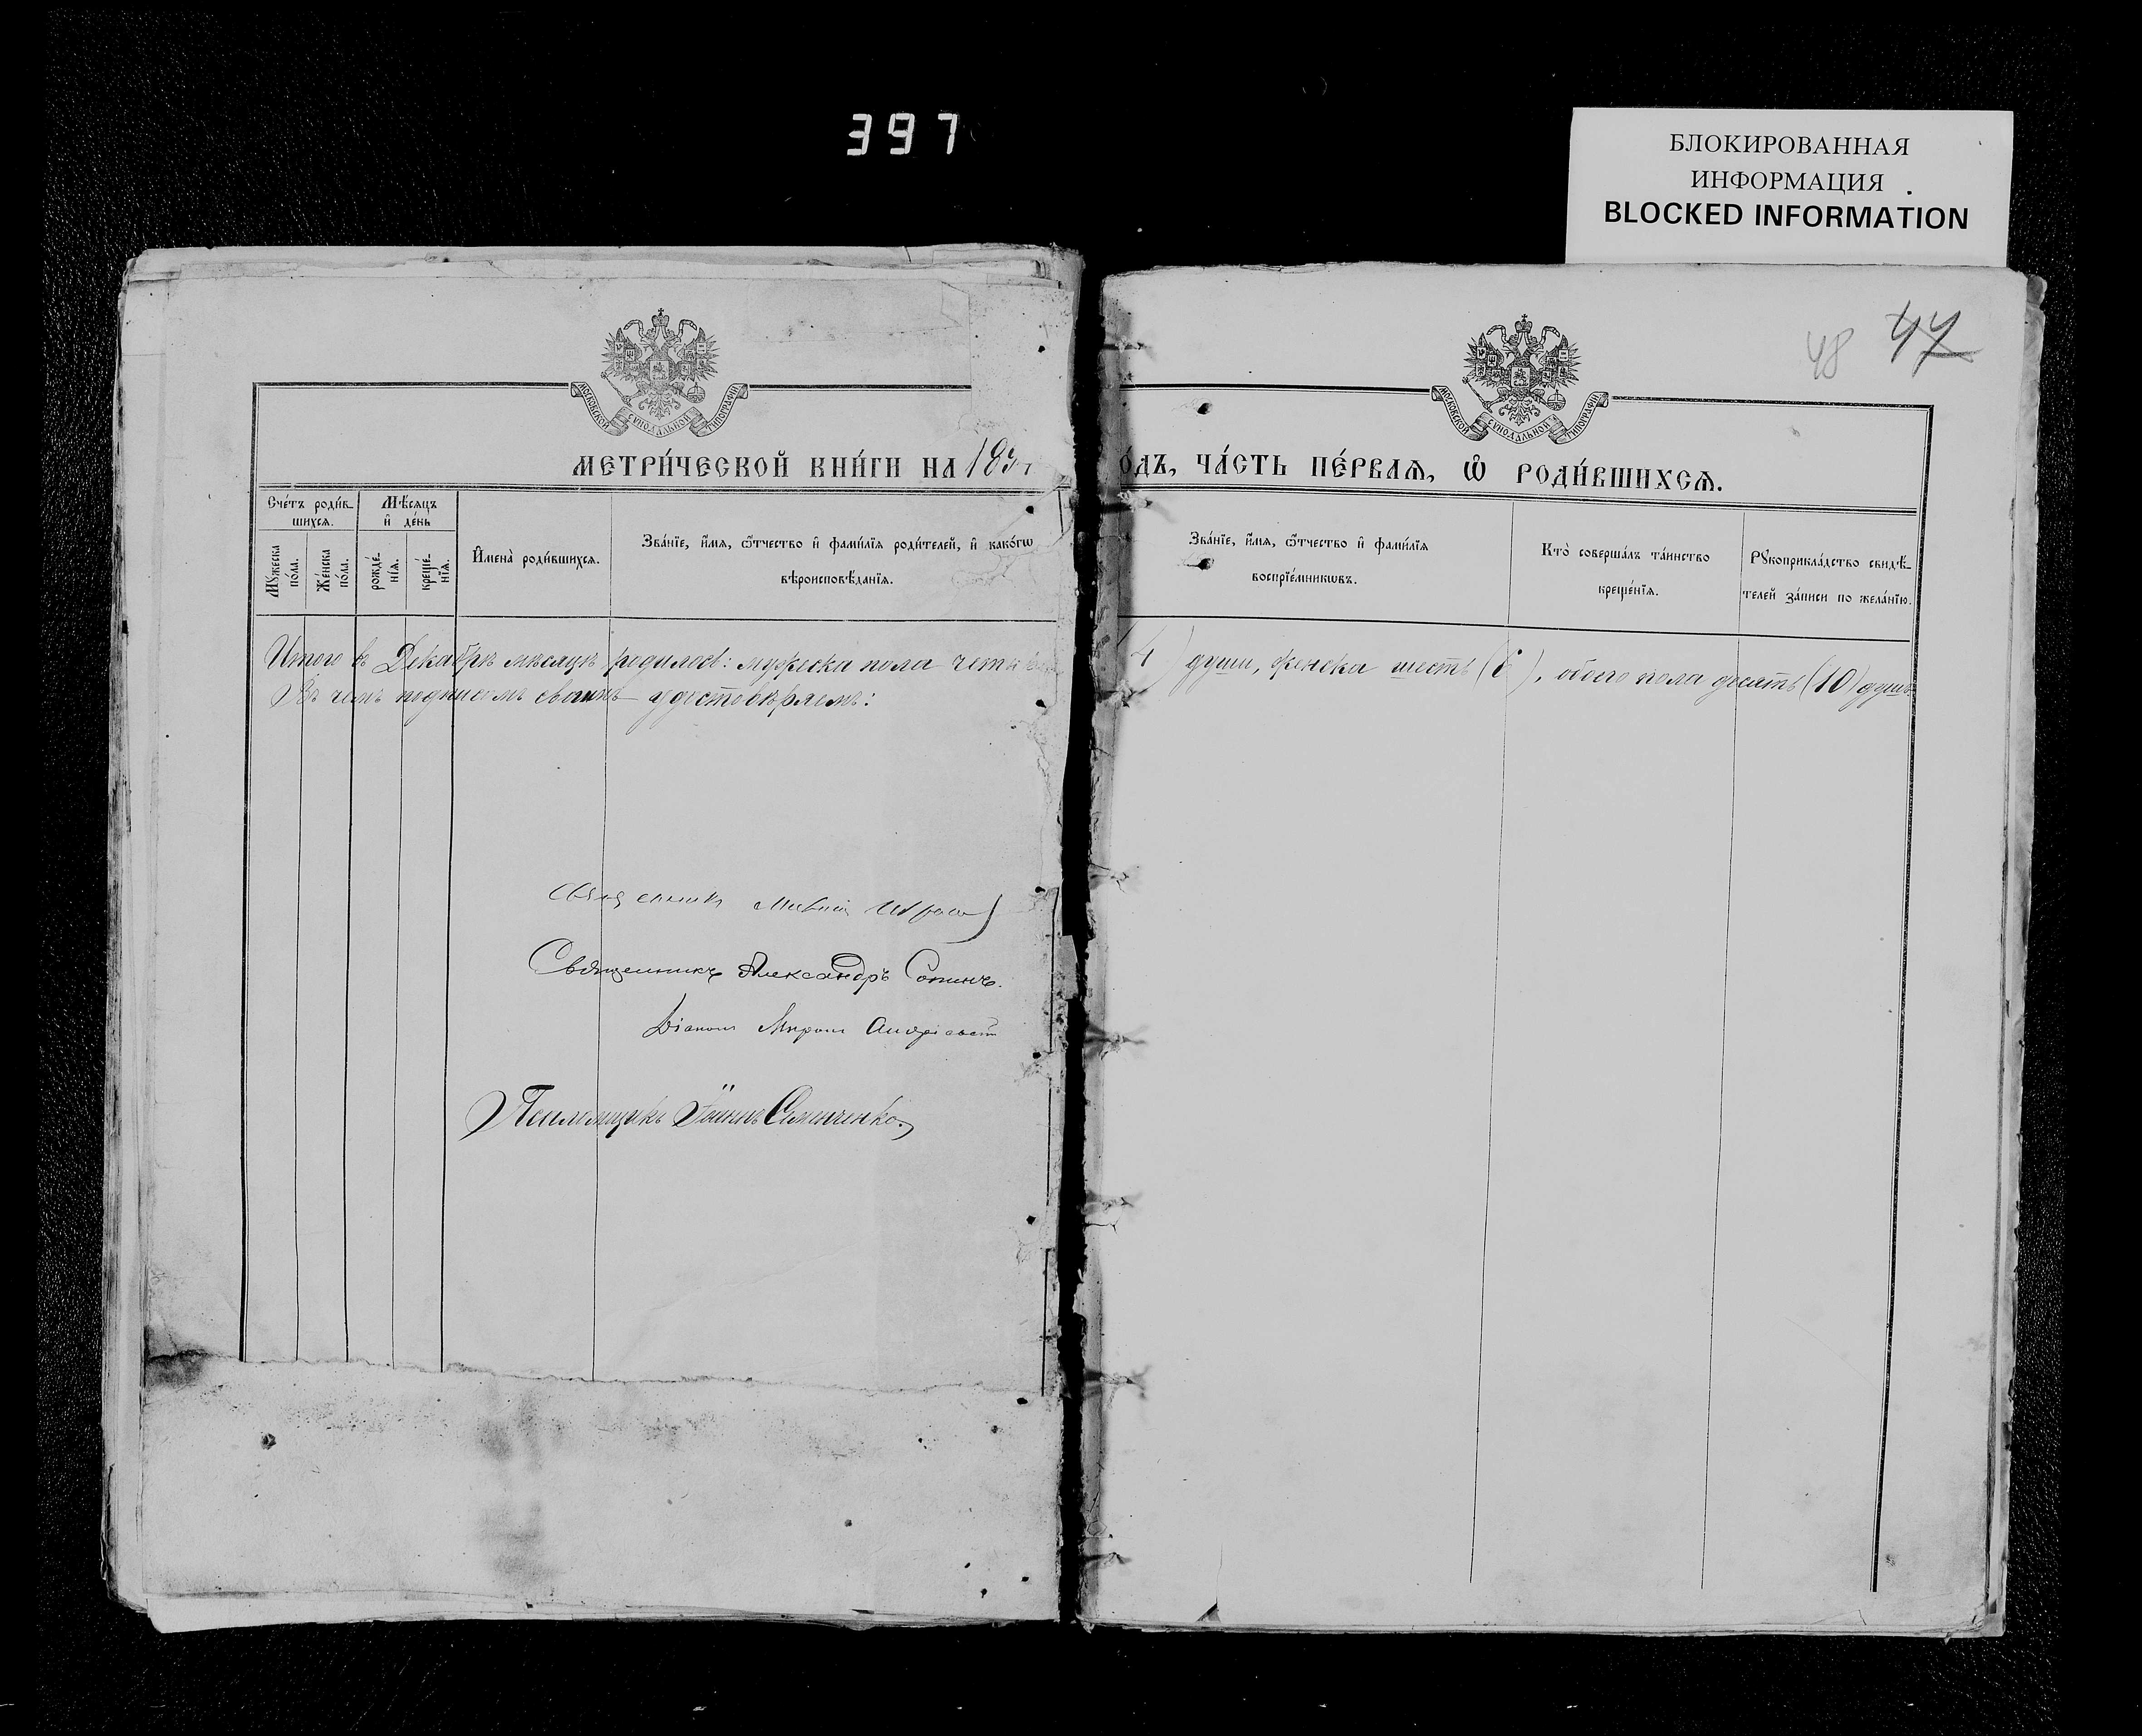 397
БЛОКИРОВАННАЯ
ИНФОРМАЦИЯ
BLOCKED INFORMATION
48 47
МОСКОВСКОЙ СѴНОДАЛЬНОЙ ТИПОГРАФІИ
МОСКОВСКОЙ СѴНОДАЛЬНОЙ ТИПОГРАФІИ
МЕТРИ́ЧЕСКОЙ КНИ́ГИ НА 189
О́ДЪ, ЧА́СТЬ ПЕ́РВАѦ, Ѡ҆ РОДИ́ВШИХСѦ.
Сче́тъ роди́в-
шихсѧ.
Мѣ́сѧцъ
и҆ де́нь
Мꙋ́жеска
по́ла.
Же́нска
по́ла.
рожде́-
нїѧ.
креще́-
нїѧ.
И҆мена̀ роди́вшихсѧ.
Зва́нїе, и҆́мѧ, ѻ҆́тчество и҆ фами́лїѧ роди́телей, и҆ како́гѡ
вѣроисповѣ́данїѧ.
Зва́нїе, и҆́мѧ, ѻ҆́тчество и҆ фами́лїѧ
воспрїе́мникѡвъ.
Кто̀ соверша́лъ та́инство
креще́нїѧ.
Рꙋкоприкла́дство свидѣ́-
телей за́писи по жела́нїю.
Итого въ Декабрѣ мѣсяцѣ родилось: мужеска пола четыре
(4) души, женска шесть (6), обоего пола десять (10) душъ
Въ чемъ подписомъ своимъ удостовѣряемъ:
Священникъ
Священникъ Александръ Сопинъ.
Діаконъ Миронъ
Псаломщикъ Іоаннъ Семенченко.